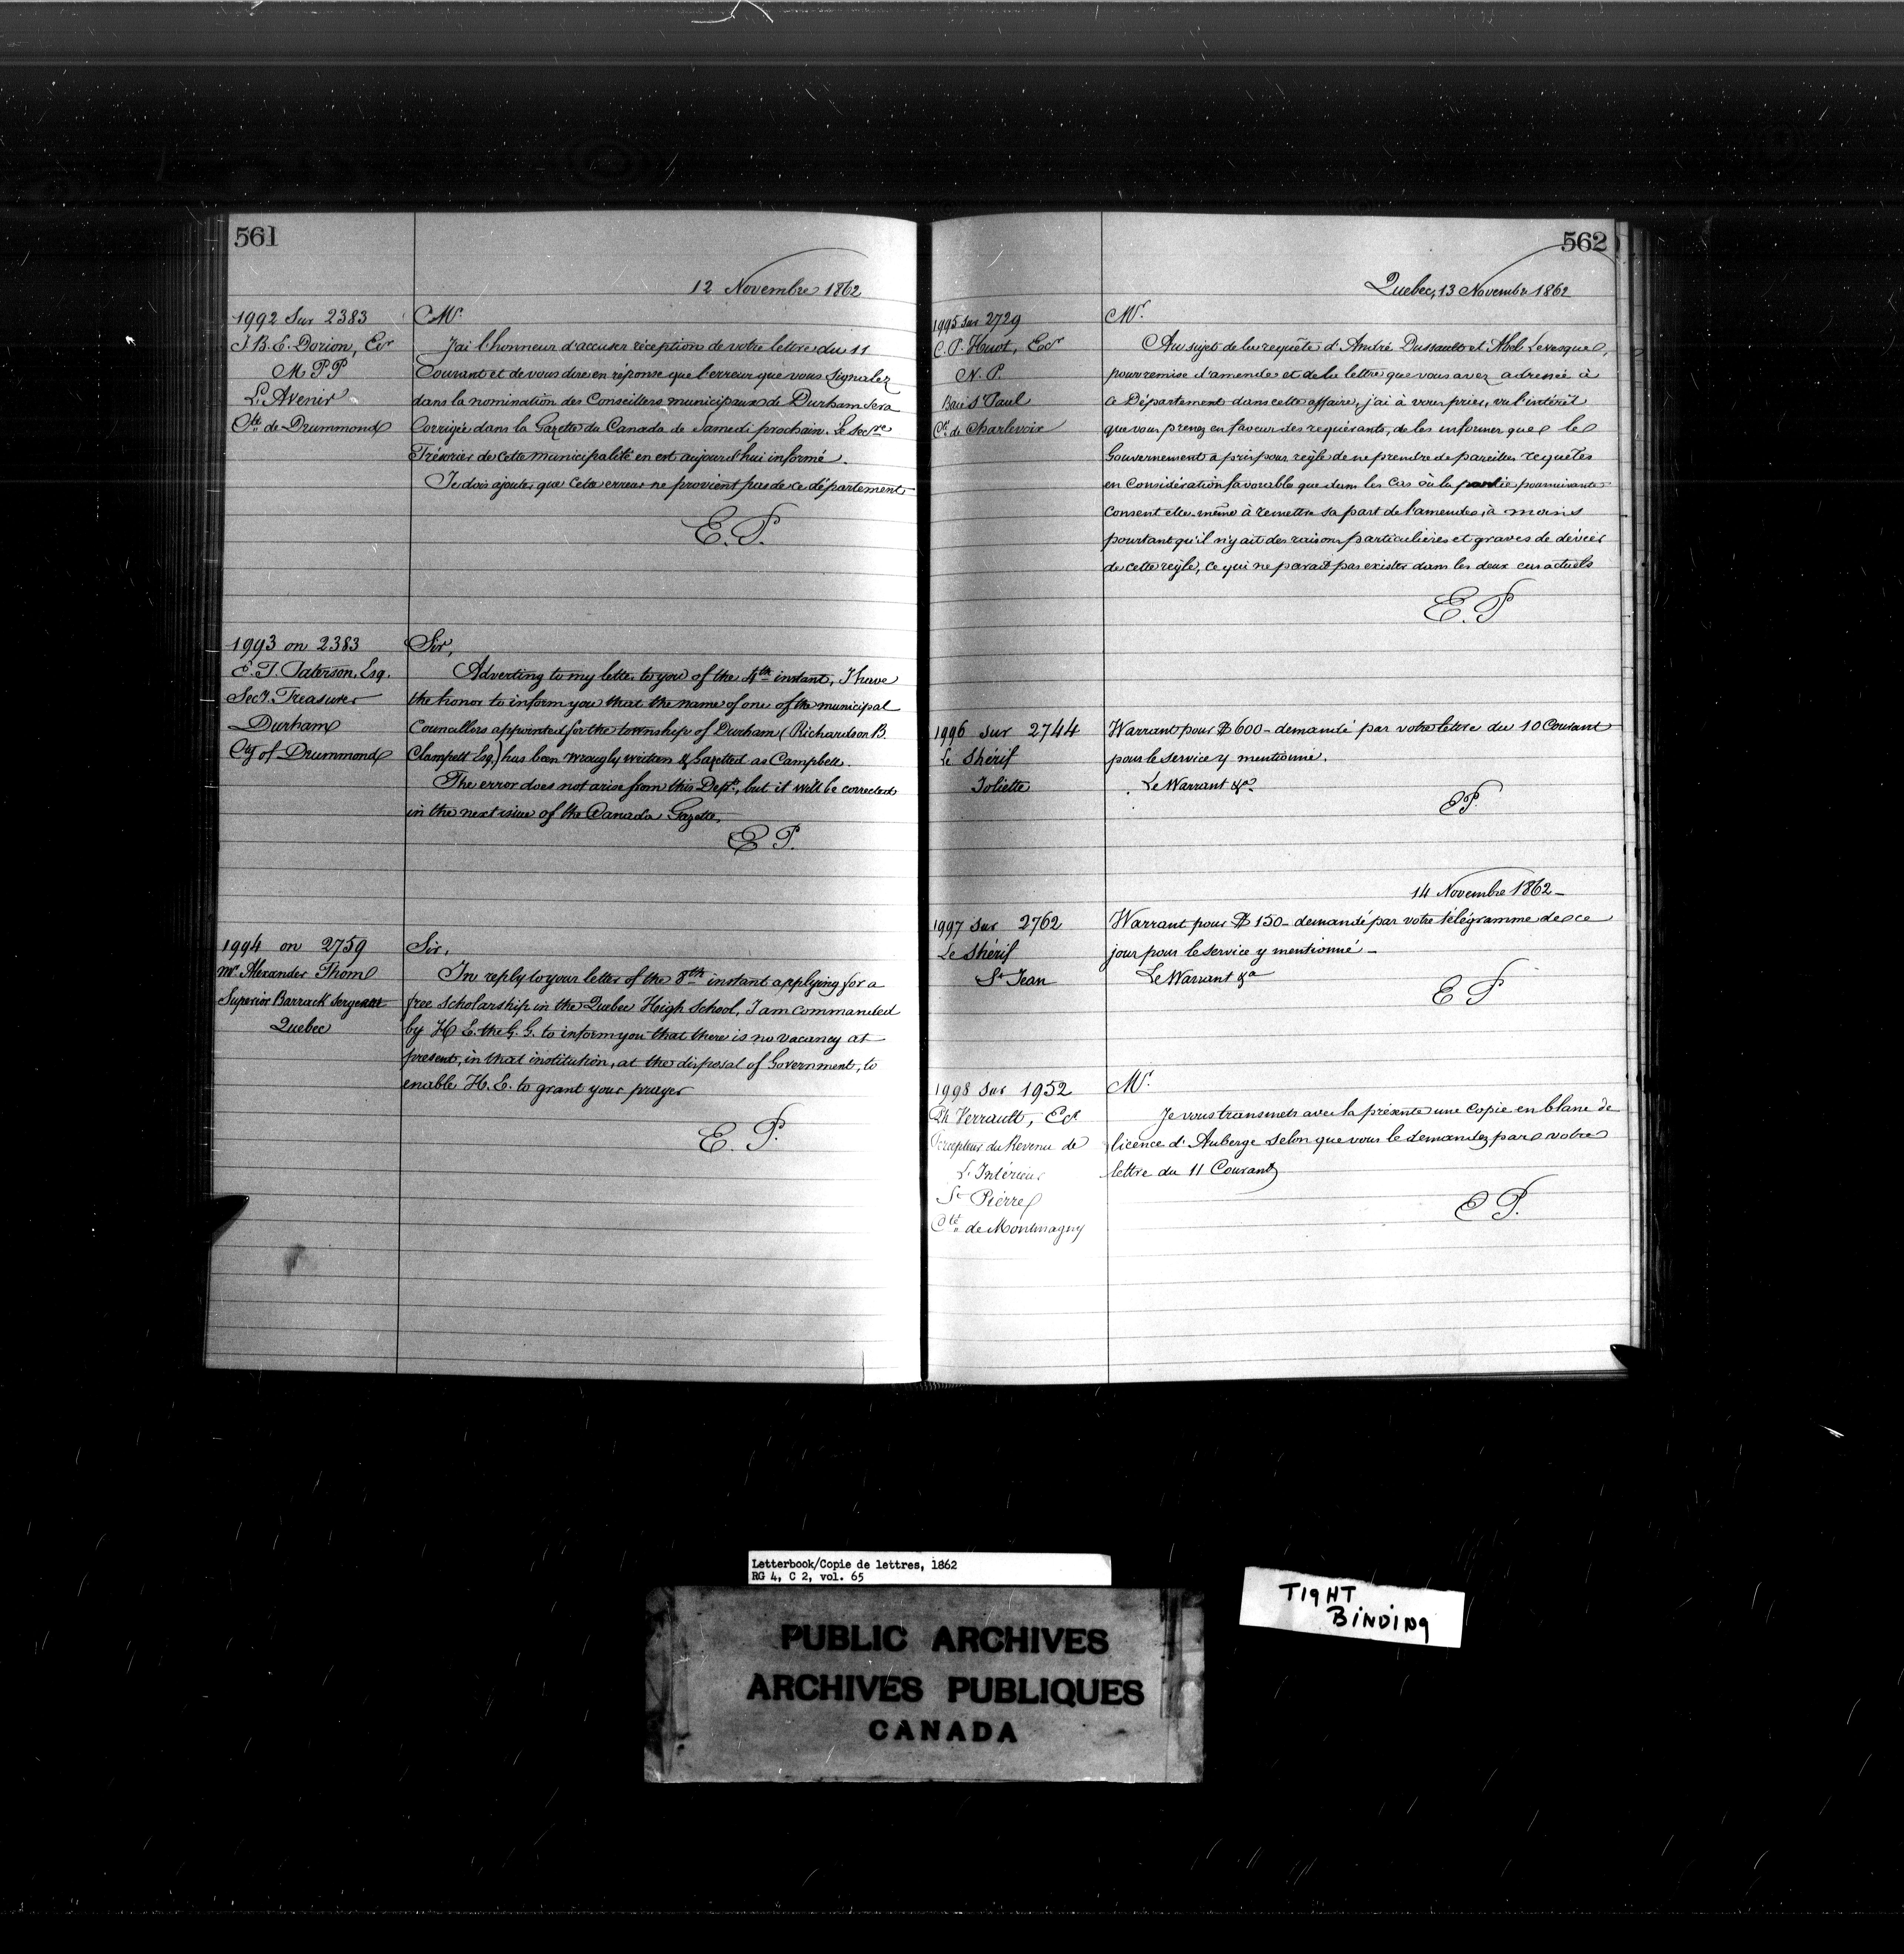 561
12 Novembre 1862
1992 Sur 2383
J. B. E. Dorion, Ecr
M P P
L'Avenir
Cté de Drummond
Mr.
J'ai l'honneur d'accuser réception de votre lettre du 11
Courant et de vous dire en réponse que l'erreur que vous signalez
dans la nomination des Conseillers municipaux de Durham sera
Corrigée dans la Gazette du Canada de Samedi prochain. Le Secre
Trésorier de cette municipalité en est aujourd'hui informé.
Je dois ajouter que cette erreur ne provient pas de ce département
E. P.
1993 on 2383
E. T. Paterson, Esq.
Secy. Treasurer
Durham
Cty of Drummond
Sir,
Adverting to my letter to you of the 4th instant, I have
the honor to inform you that the name of one of the municipal
Councillors appointed for the township of Durham (Richardson B.
Clampett Esq.) has been wrongly written & Gazetted as Campbell.
The error does not arise from this Dept., but it will be corrected
in the next issue of the Canada Gazette.
E P.
1994 on 2759
Mr Alexander Thom
Superior Barrack Sergeant
Quebec
Sir,
In reply to your letter of the 8th instant applying for a
free scholarship in the Quebec Heigh School, I am commanded
by H E. the G. G. to inform you that there is no vacancy at
present, in that institution, at the disposal of Government, to
enable H. E. to grant your prayer
E. P.
562
Quebec, 13 Novembre 1862
1995 sur 2729
C. P. Huot, Ecr
N. P.
Baie St Paul
Cté de Charlevoix
Mr.
Au sujet de la requête d'André Dussault et Abel Levesque,
pour remise d'amende et de la lettre que vous avez adressée à
ce Département dans cette affaire, j'ai à vous prier, vu l'intérêt
que vous prenez en faveur des requérants, de les informer que le
Gouvernement a pris pour règle de ne prendre de pareilles requêtes
en Considération favorable que dans les cas où la partie poursuivante
Consent elle-même à remettre sa part de l'amende, à moins
pourtant qu'il n'y ait des raisons particulières et graves de dévier
de cette règle, ce qui ne parait pas exister dans les deux cas actuels
E. P
1996 sur 2744
Le Shérif
Joliette
Warrant pour $600 - demandé par votre lettre du 10 Courant
pour le service y mentionné.
Le Warrant &a
E P.
14 Novembre 1862 -
1997 sur 2762
Le Shérif
St Jean
Warrant pour $150 - demandé par votre télégramme de ce
jour pour le service y mentionné -
Le Warrant &a
E P
1998 sur 1952
Ph Verrault, Ecr
Percepteur du Revenu de
L'Intérieur
St Pierre
Cté de Montmagny
Mr.
Je vous transmets avec la présente une copie en blanc de
licence d'Auberge selon que vous le demandez par votre
lettre du 11 Courant
E P.
Letterbook/Copie de lettres, 1862
RG 4, C 2, vol. 65
PUBLIC ARCHIVES
ARCHIVES PUBLIQUES
CANADA
TIGHT
BINDING